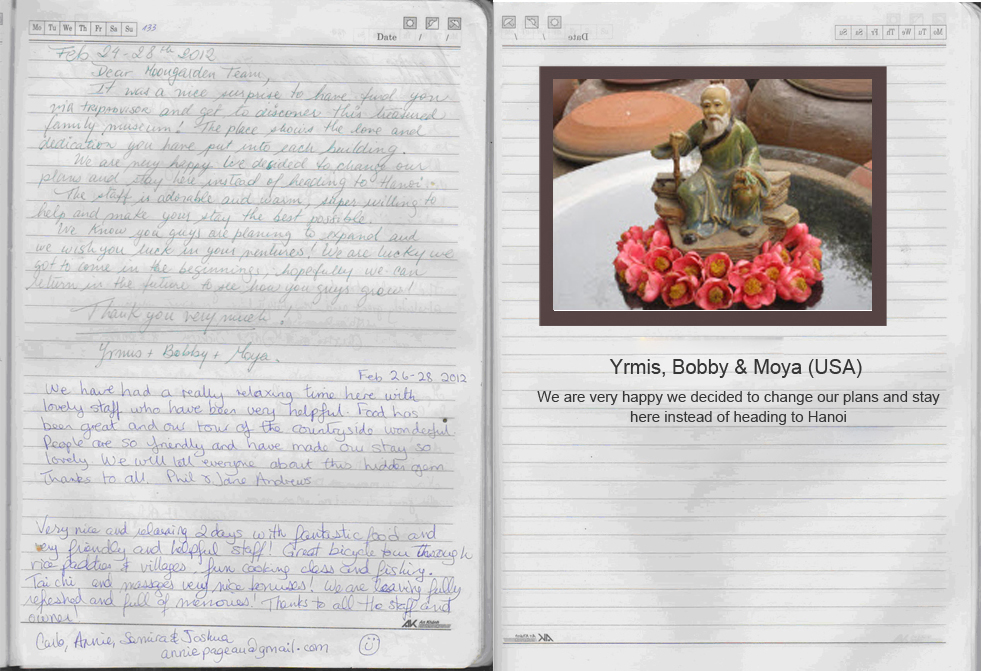 Mo Tu We Th Fr Sa Su 133
Date / /
Feb 24-28th 2012
Dear Moongarden Team,
It was a nice surprise to have find you
via tripadvisor and get to discover this beautiful
family museum! The place shows the love and
dedication you have put into each building.
We are very happy we decided to change our
plans and stay here instead of heading to Hanoi.
The staff is adorable and warm, super willing to
help and make your stay the best possible.
We know you guys are planing to expand and
we wish you luck in your ventures! We are lucky we
got to come in the beginnings, hopefully we can
return in the future to see how you guys grow!
Thank you very much!
Yrmis + Bobby + Moya.
Feb 26-28 2012
We have had a really relaxing time here with
lovely staff who have been very helpful. Food has
been great and our tour of the countryside wonderful.
People are so friendly and have made our stay so
lovely. We will tell everyone about this hidden gem
Thanks to all. Phil & Jane Andrews
Very nice and relaxing 2 days with fantastic food and
very friendly and helpful staff! Great bicycle tour through
rice paddies & villages. fun cooking class and fishing.
Tai chi and massages very nice bonuses! We are leaving fully
refreshed and full of memories! Thanks to all the staff and
owner
Carlo, Annie, Samira & Joshua
anniepageau@gmail.com
AK An Khánh
Date / /
Mo Tu We Th Fr Sa Su
Yrmis, Bobby & Moya (USA)
We are very happy we decided to change our plans and stay
here instead of heading to Hanoi
AK